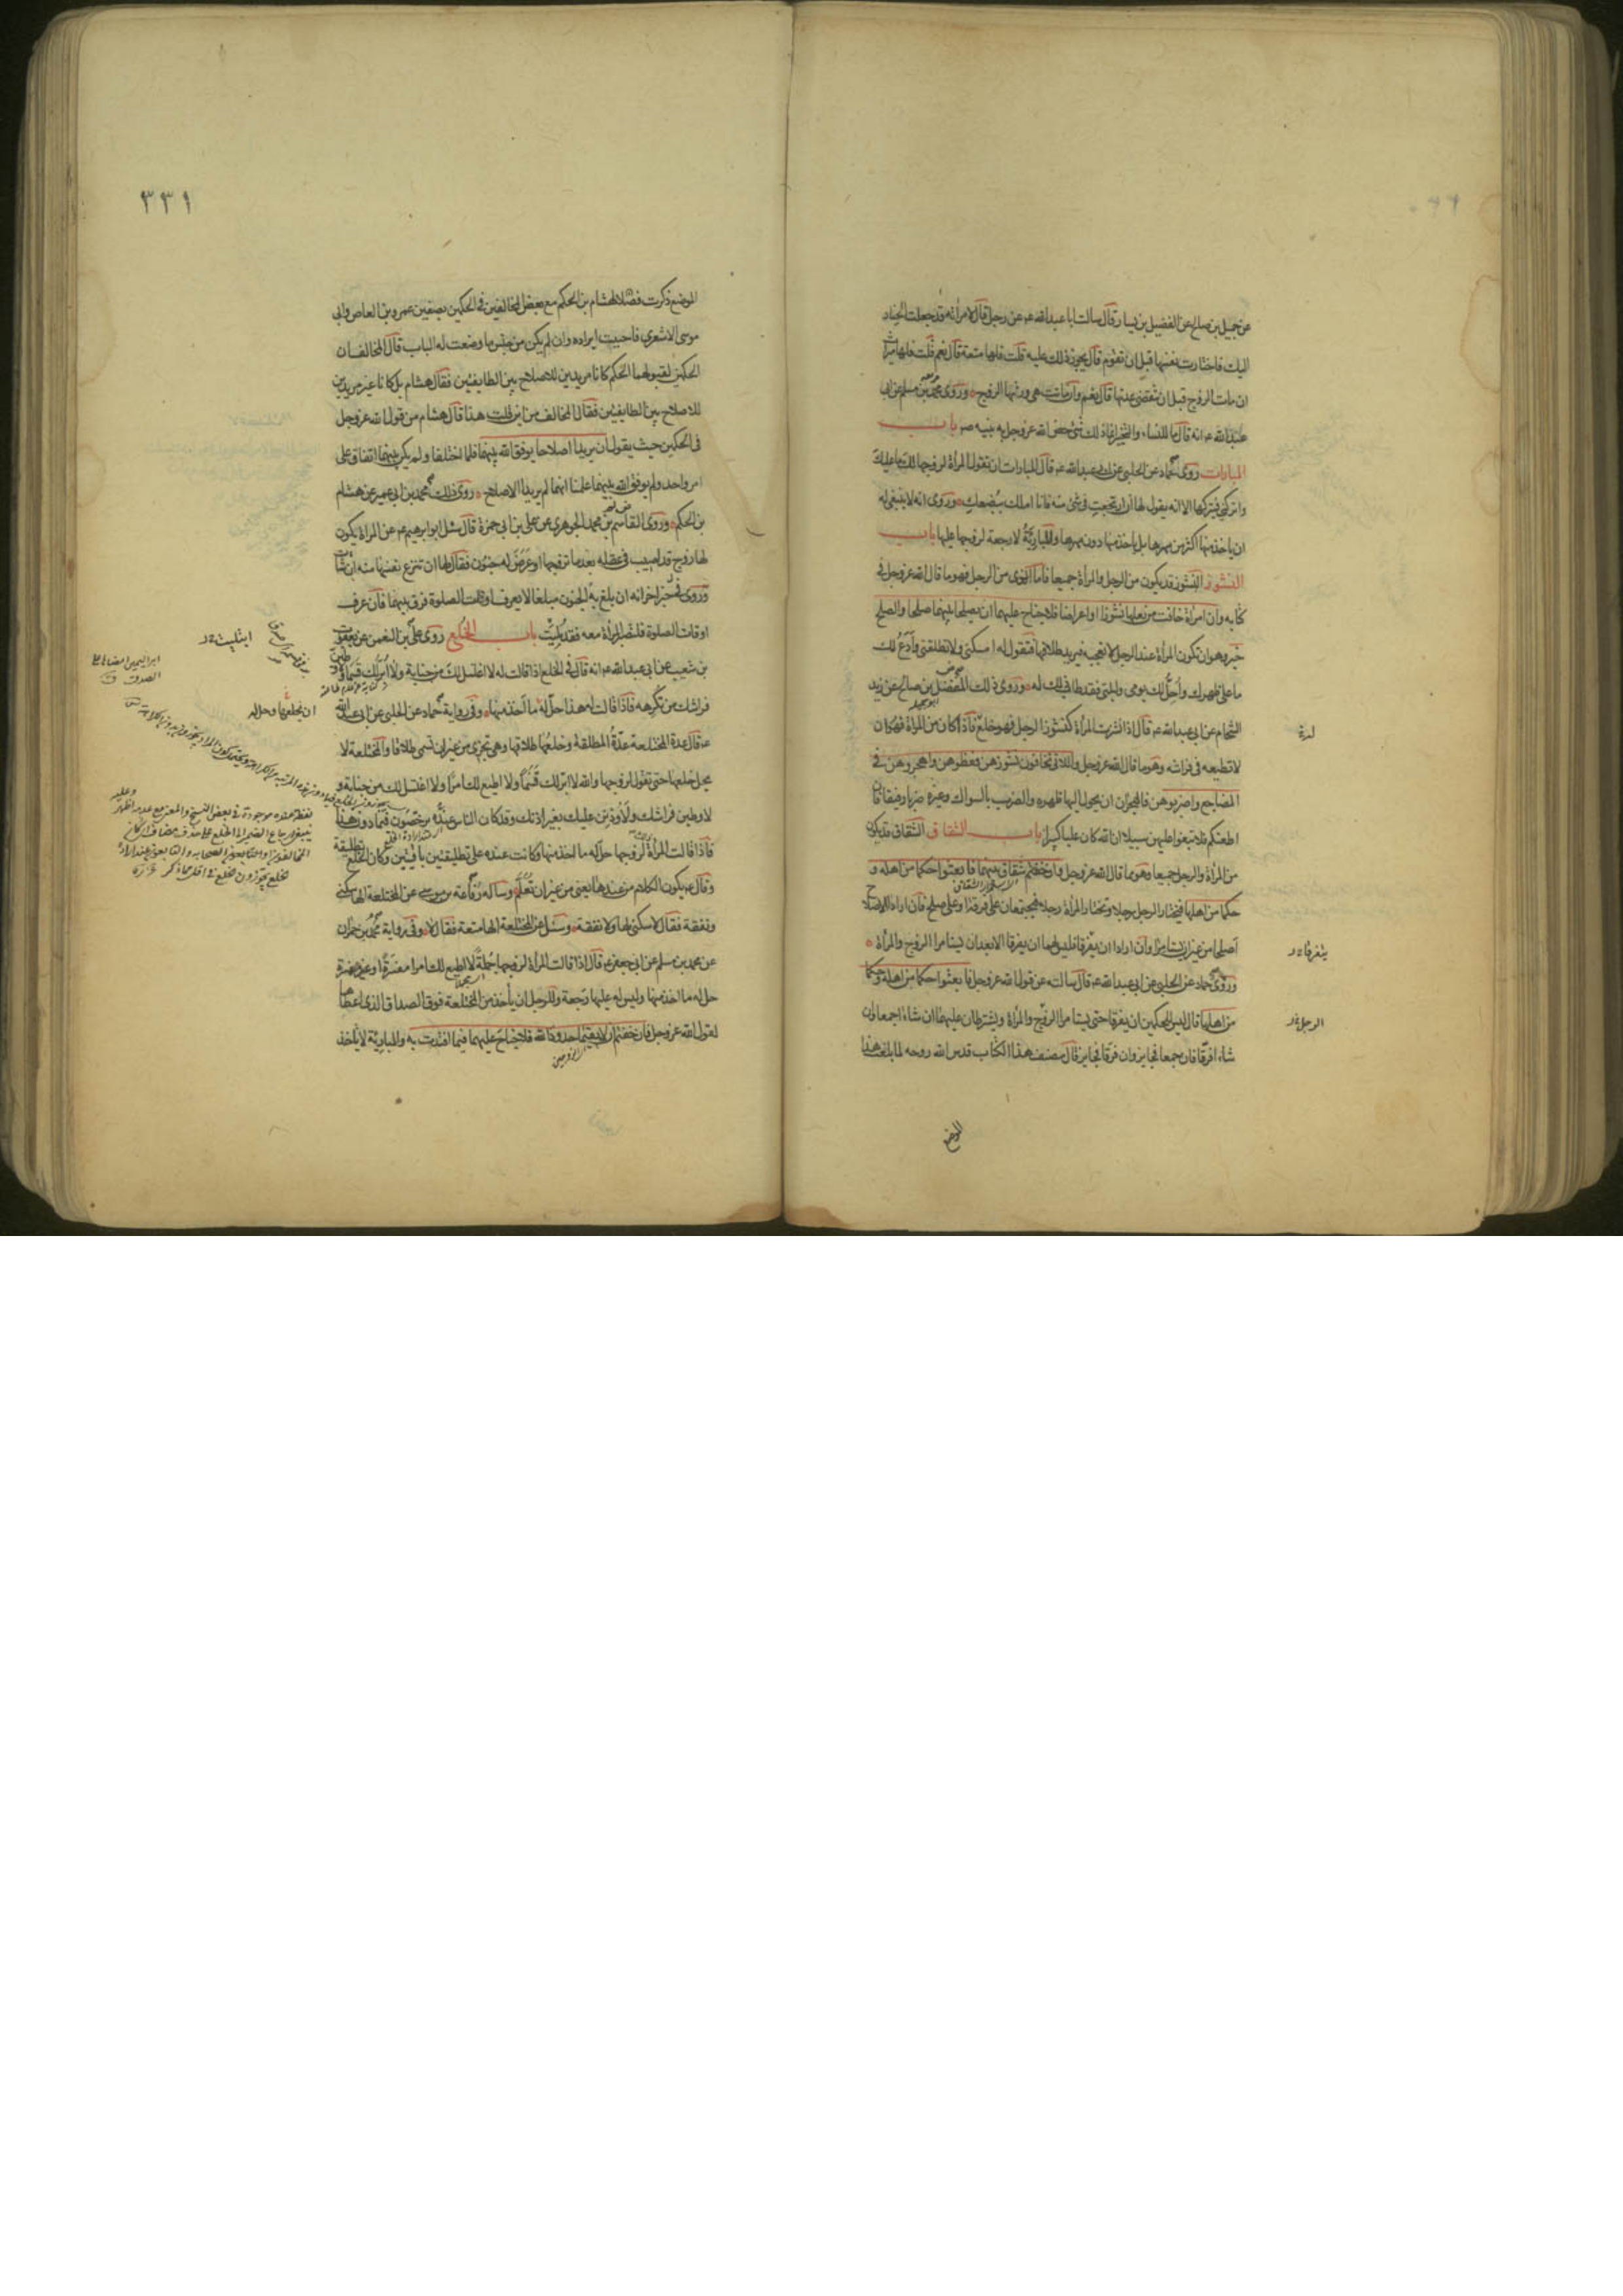 عن جميل بن صالح عن الفضيل بن يسار قال سالت ابا عبدالله ع عن رجل قال لامرأته قد جعلت الخيار
اليك فاختارت نفسها قبل ان تقوم قال يجوز ذلك عليه قلت فلها متعة قال نعم قلت فلها ميراث
ان مات الزوج قبل ان تنقضي عدتها قال نعم وان ماتت هي ورثها الزوج وروى محمد بن مسلم عن ابي
عبدالله ع انه قال ما للنساء والتخيير انما ذلك شئ خص الله عز وجل به نبيه ص باب
المبارات روى حماد عن الحلبي عن ابي عبدالله ع قال المبارات ان تقول المرأة لزوجها لك ما عليك
واتركني فيتركها الا انه يقول لها ان ارتجعت في شئ منه فانا املك ببضعك وروى انه لا ينبغي له
ان ياخذ منها اكثر من مهرها بل ياخذ منها دون مهرها والمبارئة لا رجعة لزوجها عليها باب
النشوز النشوز قد يكون من الرجل والمرأة جميعا فاما الذي من الرجل فهو ما قال الله عز وجل في
كتابه وان امرأة خافت من بعلها نشوزا او اعراضا فلا جناح عليهما ان يصلحا بينهما صلحا والصلح
خير وهو ان تكون المرأة عند الرجل لا تعجبه فيريد طلاقها فتقول له امسكني ولا تطلقني وادع لك
ما على ظهرك واحل لك يومي وليلتي فقد طاب ذلك له وروى ذلك المفضل بن صالح عن زيد
الشحام عن ابي عبدالله ع قال اذا نشزت المرأة كنشوز الرجل فهو خلع فاذا كان من المرأة فهو ان
لا تطيعه في فراشه وهو ما قال الله عز وجل واللاتي تخافون نشوزهن فعظوهن واهجروهن في
المضاجع واضربوهن فالهجران ان يحول اليها ظهره والضرب بالسواك وغيره ضربا رفيقا فان
اطعنكم فلا تبغوا عليهن سبيلا ان الله كان عليا كبيرا باب الشقاق الشقاق قد يكون
من المرأة والرجل جميعا وهو ما قال الله عز وجل وان خفتم شقاق بينهما فابعثوا حكما من اهله و
حكما من اهلها فيختار الرجل رجلا وتختار المرأة رجلا فيجتمعان على فرقة او على صلح فان ارادا الاصلاح
اصلحا من غير ان يستامرا وان ارادا ان يفرقا فليس لهما ان يفرقا الا بعد ان يستامرا الزوج والمرأة
وروى حماد عن الحلبي عن ابي عبدالله ع قال سالته عن قول الله عز وجل فابعثوا حكما من اهله وحكما
من اهلها قال ليس للحكمين ان يفرقا حتى يستامرا الرجل والمرأة ويشترطان عليهما ان شاءا جمعا وان
شاءا فرقا فان جمعا فجايز وان فرقا فجايز قال مصنف هذا الكتاب قدس الله روحه لما بلغت هذا
الموضع
٣٣١
الموضع ذكرت فصلا لهشام بن الحكم مع بعض المخالفين في الحكمين بصفين عمرو بن العاص وابي
موسى الاشعري فاحببت ايراده وان لم يكن من جنس ما وضعت له الباب قال المخالف ان
الحكمين لقبولهما الحكم كانا مريدين للاصلاح بين الطايفتين فقال هشام بل كانا غير مريدين
للاصلاح بين الطايفتين فقال المخالف من اين قلت هذا قال هشام من قول الله عز وجل
في الحكمين حيث يقول ان يريدا اصلاحا يوفق الله بينهما فلما اختلفا ولم يكن بينهما اتفاق على
امر واحد ولم يوفق الله بينهما علمنا انهما لم يريدا الاصلاح روى ذلك محمد بن ابي عمير عن هشام
بن الحكم وروى القاسم بن محمد الجوهري عن علي بن ابي حمزة قال سئل ابو ابراهيم ع عن المراة يكون
لها زوج قد اصيب في عقله بعد ما تزوجها او عرض له جنون فقال لها ان تنزع نفسها منه ان شاءت
وروى في خبر اخر انه ان بلغ به الجنون مبلغا لا يعرف اوقات الصلوة فرق بينهما فان عرف
اوقات الصلوة فلتصبر المرأة معه فقد بليت باب الخلع روى علي بن النعمن عن يعقوب
بن شعيب عن ابي عبدالله ع انه قال في الخلع اذا قالت له لا اغتسل لك من جنابة ولا ابر لك قسما ولاوطين
فراشك من تكرهه فاذا قالت له هذا حل له ما اخذ منها وفي رواية حماد عن الحلبي عن ابي عبدالله
ع قال عدة المختلعة عدة المطلقة وخلعها طلاقها وهي تجزي من غير ان تسمى طلاقا والمختلعة لا
يحل خلعها حتى تقول لزوجها والله لا ابر لك قسما ولا اطيع لك امرا ولا اغتسل لك من جنابة و
لاوطين فراشك ولاوذنن عليك بغير اذنك وقد كان الناس عنده يرخصون فيما دون هذا
فاذا قالت المرأة لزوجها حل له ما اخذ منها وكانت عنده على تطليقتين باقيتين وكان الخلع تطليقة
وقال ع يكون الكلام من عندها يعني من غير ان تعلم وساله رفاعة بن موسى عن المختلعة الها سكنى
ونفقة فقال لا سكنى لها ولا نفقة وسئل عن المختلعة الها متعة فقال لا وفي رواية محمد بن حمران
عن محمد بن مسلم عن ابي جعفر ع قال اذا قالت المرأة لزوجها جملة لا اطيع لك امرا مفسرة او غير مفسرة
حل له ما اخذ منها وليس له عليها رجعة وللرجل ان ياخذ من المختلعة فوق الصداق الذي اعطاها
لقول الله عز وجل فان خفتم ان لا يقيما حدود الله فلا جناح عليهما فيما افتدت به والمبارئة لا ياخذ